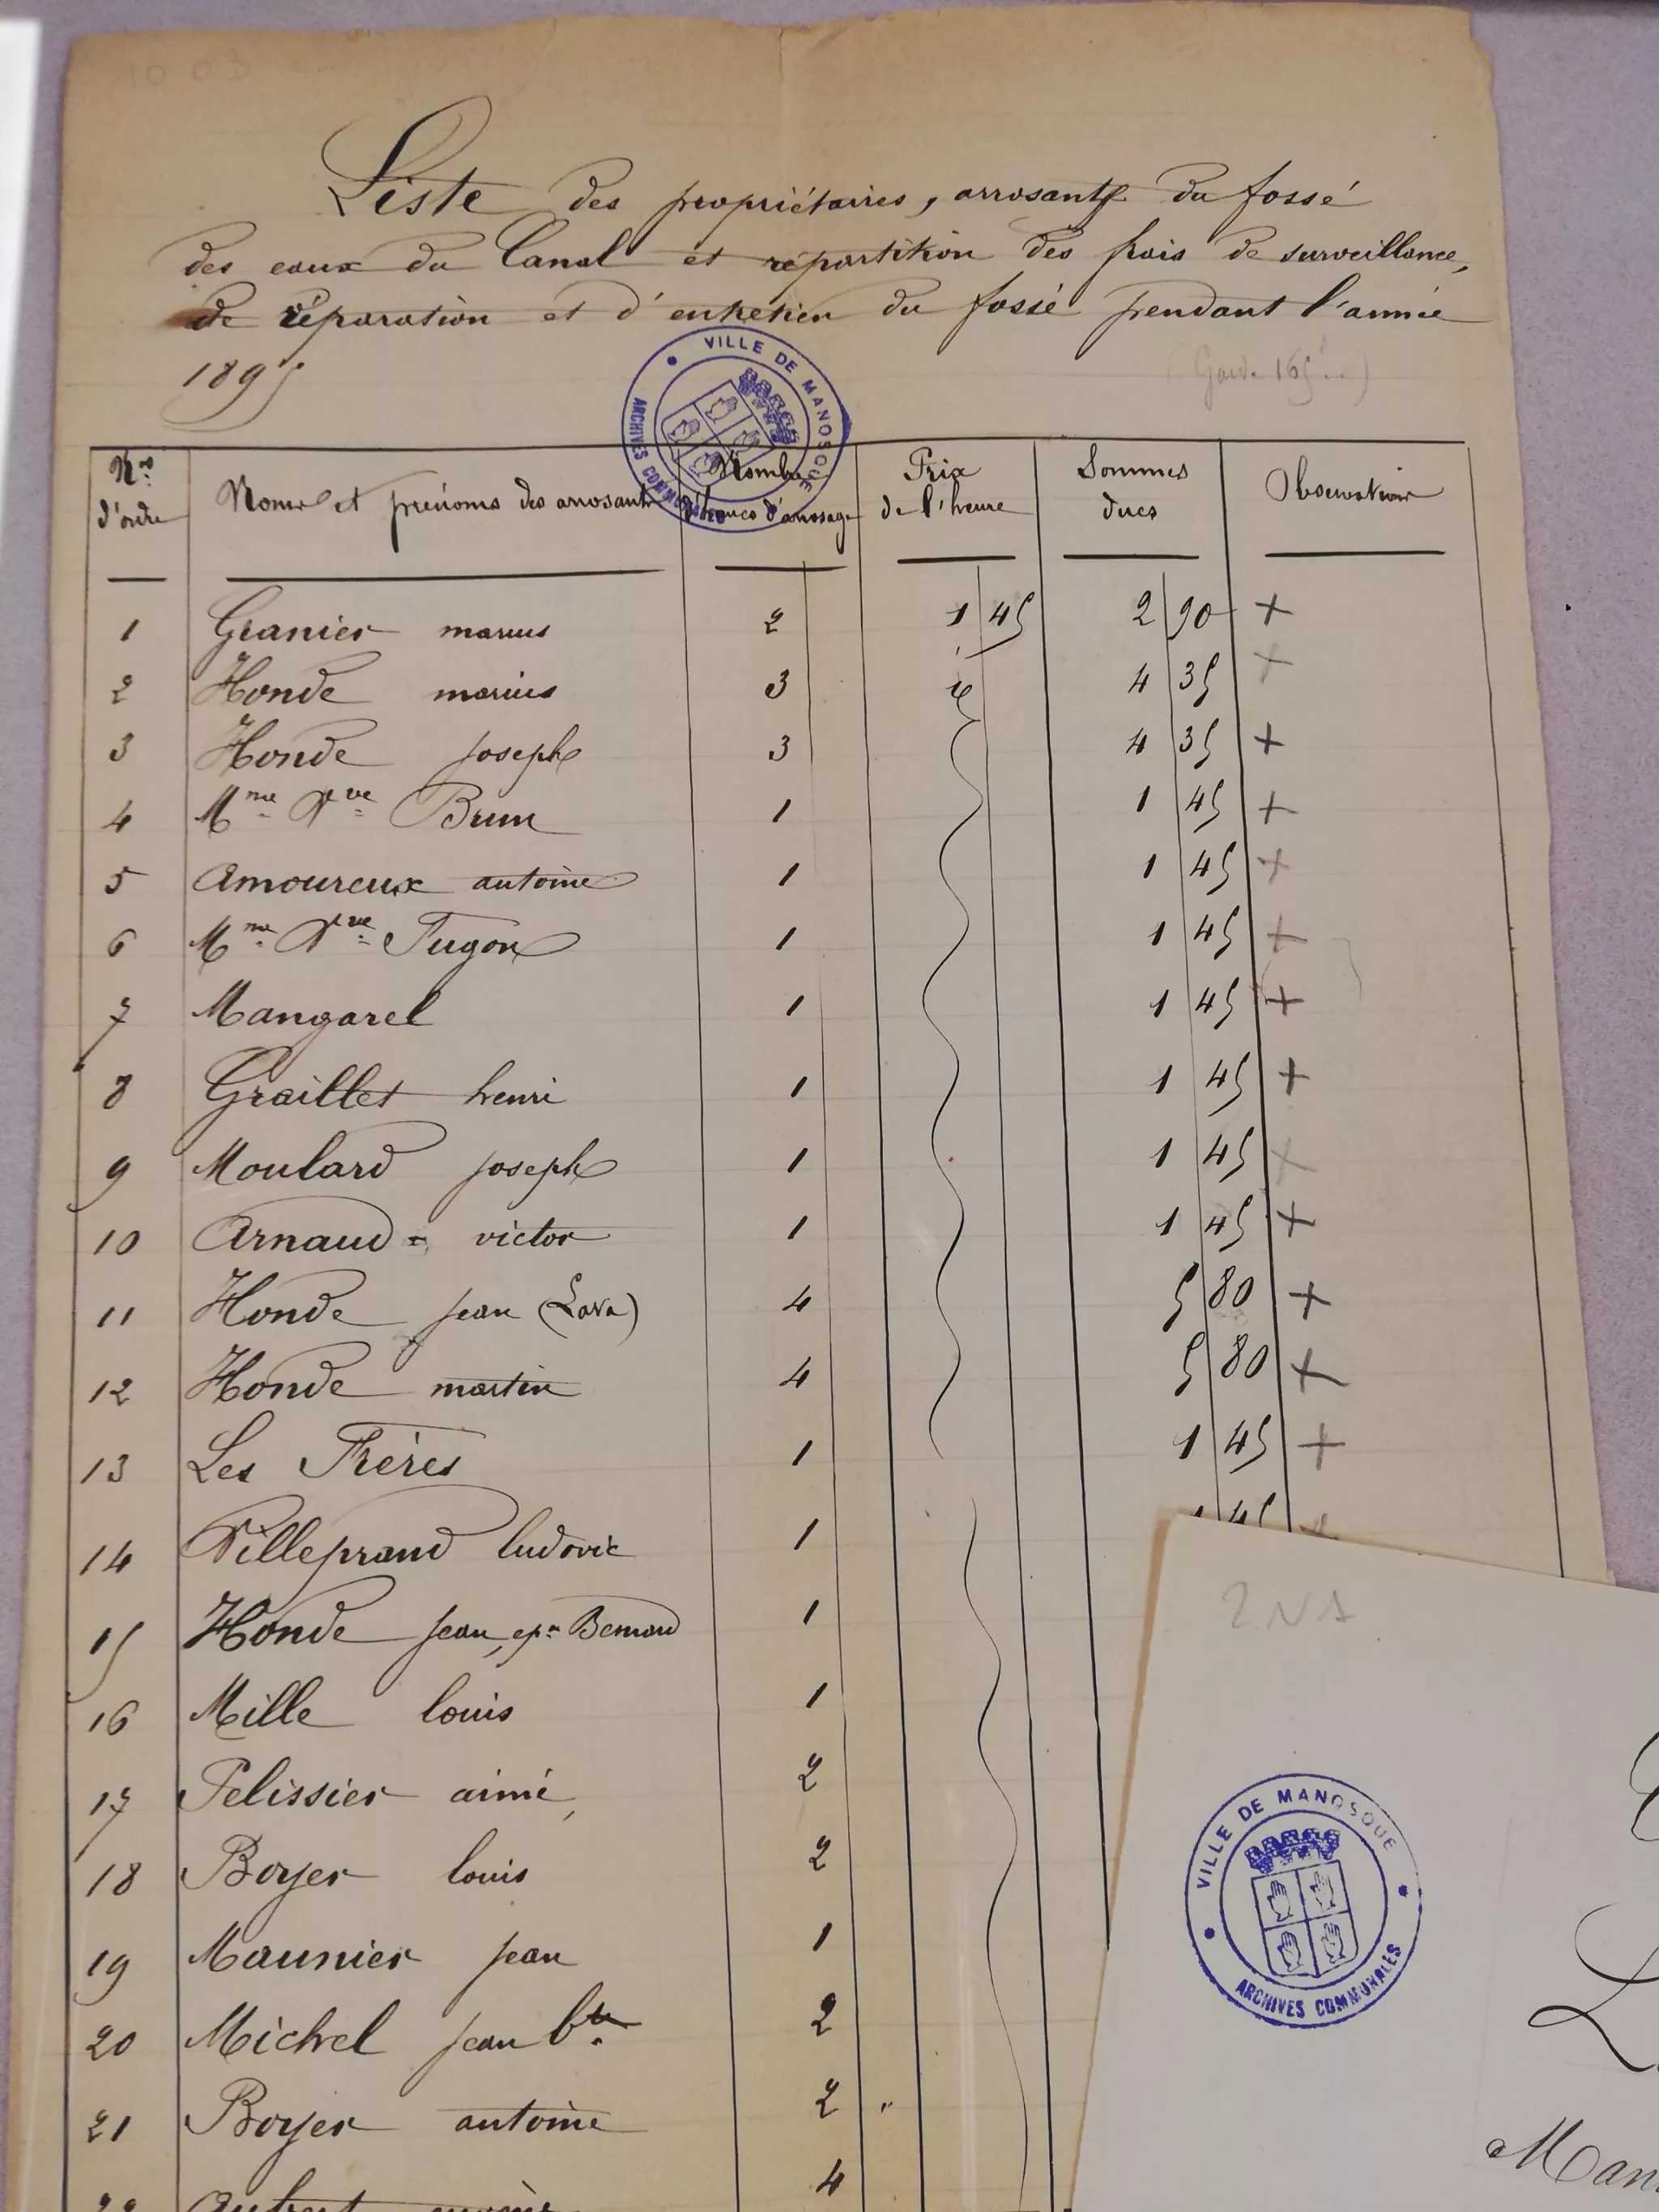 Liste des propriétaires, arrosants du fossé
des eaux du Canal et répartition des frais de surveillance,
de réparation et d'entretien du fossé pendant l'année
1895
VILLE DE MANOSQUE
ARCHIVES COMMUNALES
Nos d'ordre | Noms et prénoms des arrosants | Nombre d'heures d'arrosage | Prix de l'heure | Sommes dues | Observations
1 Granier marius 2 1 45 2 90 +
2 Honde marius 3 4 35 +
3 Honde joseph 3 4 35 +
4 Mme Vve Brun 1 1 45 +
5 Amoureux antoine 1 1 45 +
6 Mme Vve Fugon 1 1 45 +
7 Mangarel 1 1 45 +
8 Graillet henri 1 1 45 +
9 Moulard joseph 1 1 45 +
10 Arnaud - victor 1 1 45 +
11 Honde jean (Lava) 4 5 80 +
12 Honde martin 4 5 80 +
13 Les Frères 1 1 45 +
14 Villeprand ludovic 1 1 45 +
15 Honde jean, epx Bernard 1
16 Mille louis 1
17 Pelissier aimé 2
18 Boyer louis 2
19 Maunier jean 1
20 Michel jean bte 2
21 Boyer antoine 2 "
22 Aubert 4
2 N 1
VILLE DE MANOSQUE
ARCHIVES COMMUNALES
Man